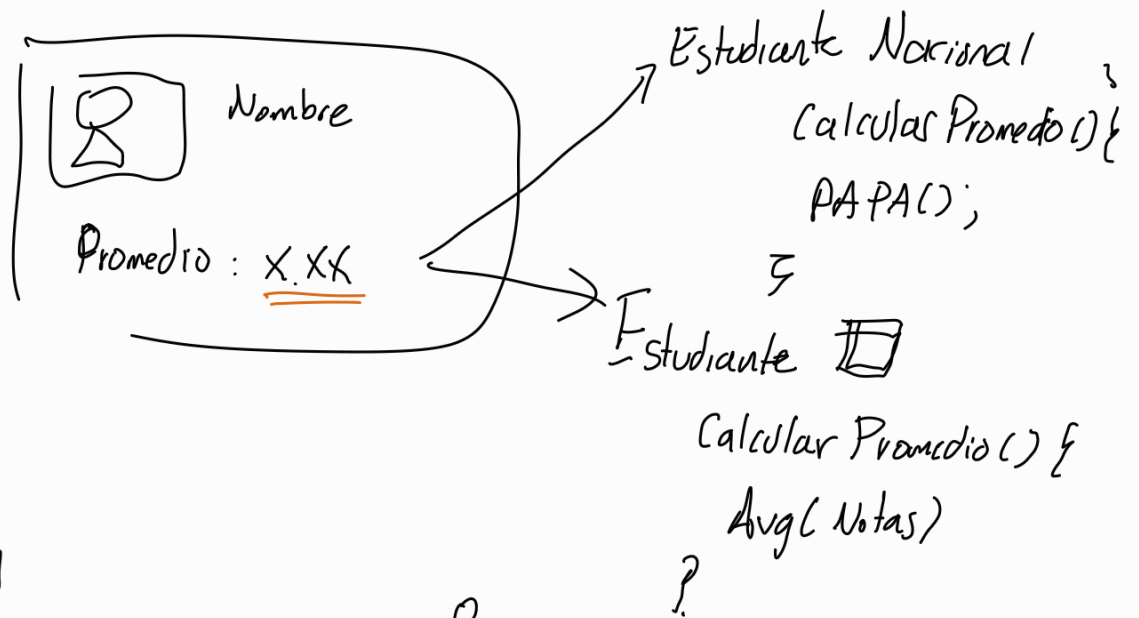 Nombre
Promedio: X.XX
Estudiante Nacional
CalcularPromedio(){
PAPA();
}
Estudiante
Calcular Promedio(){
Avg(Notas)
}